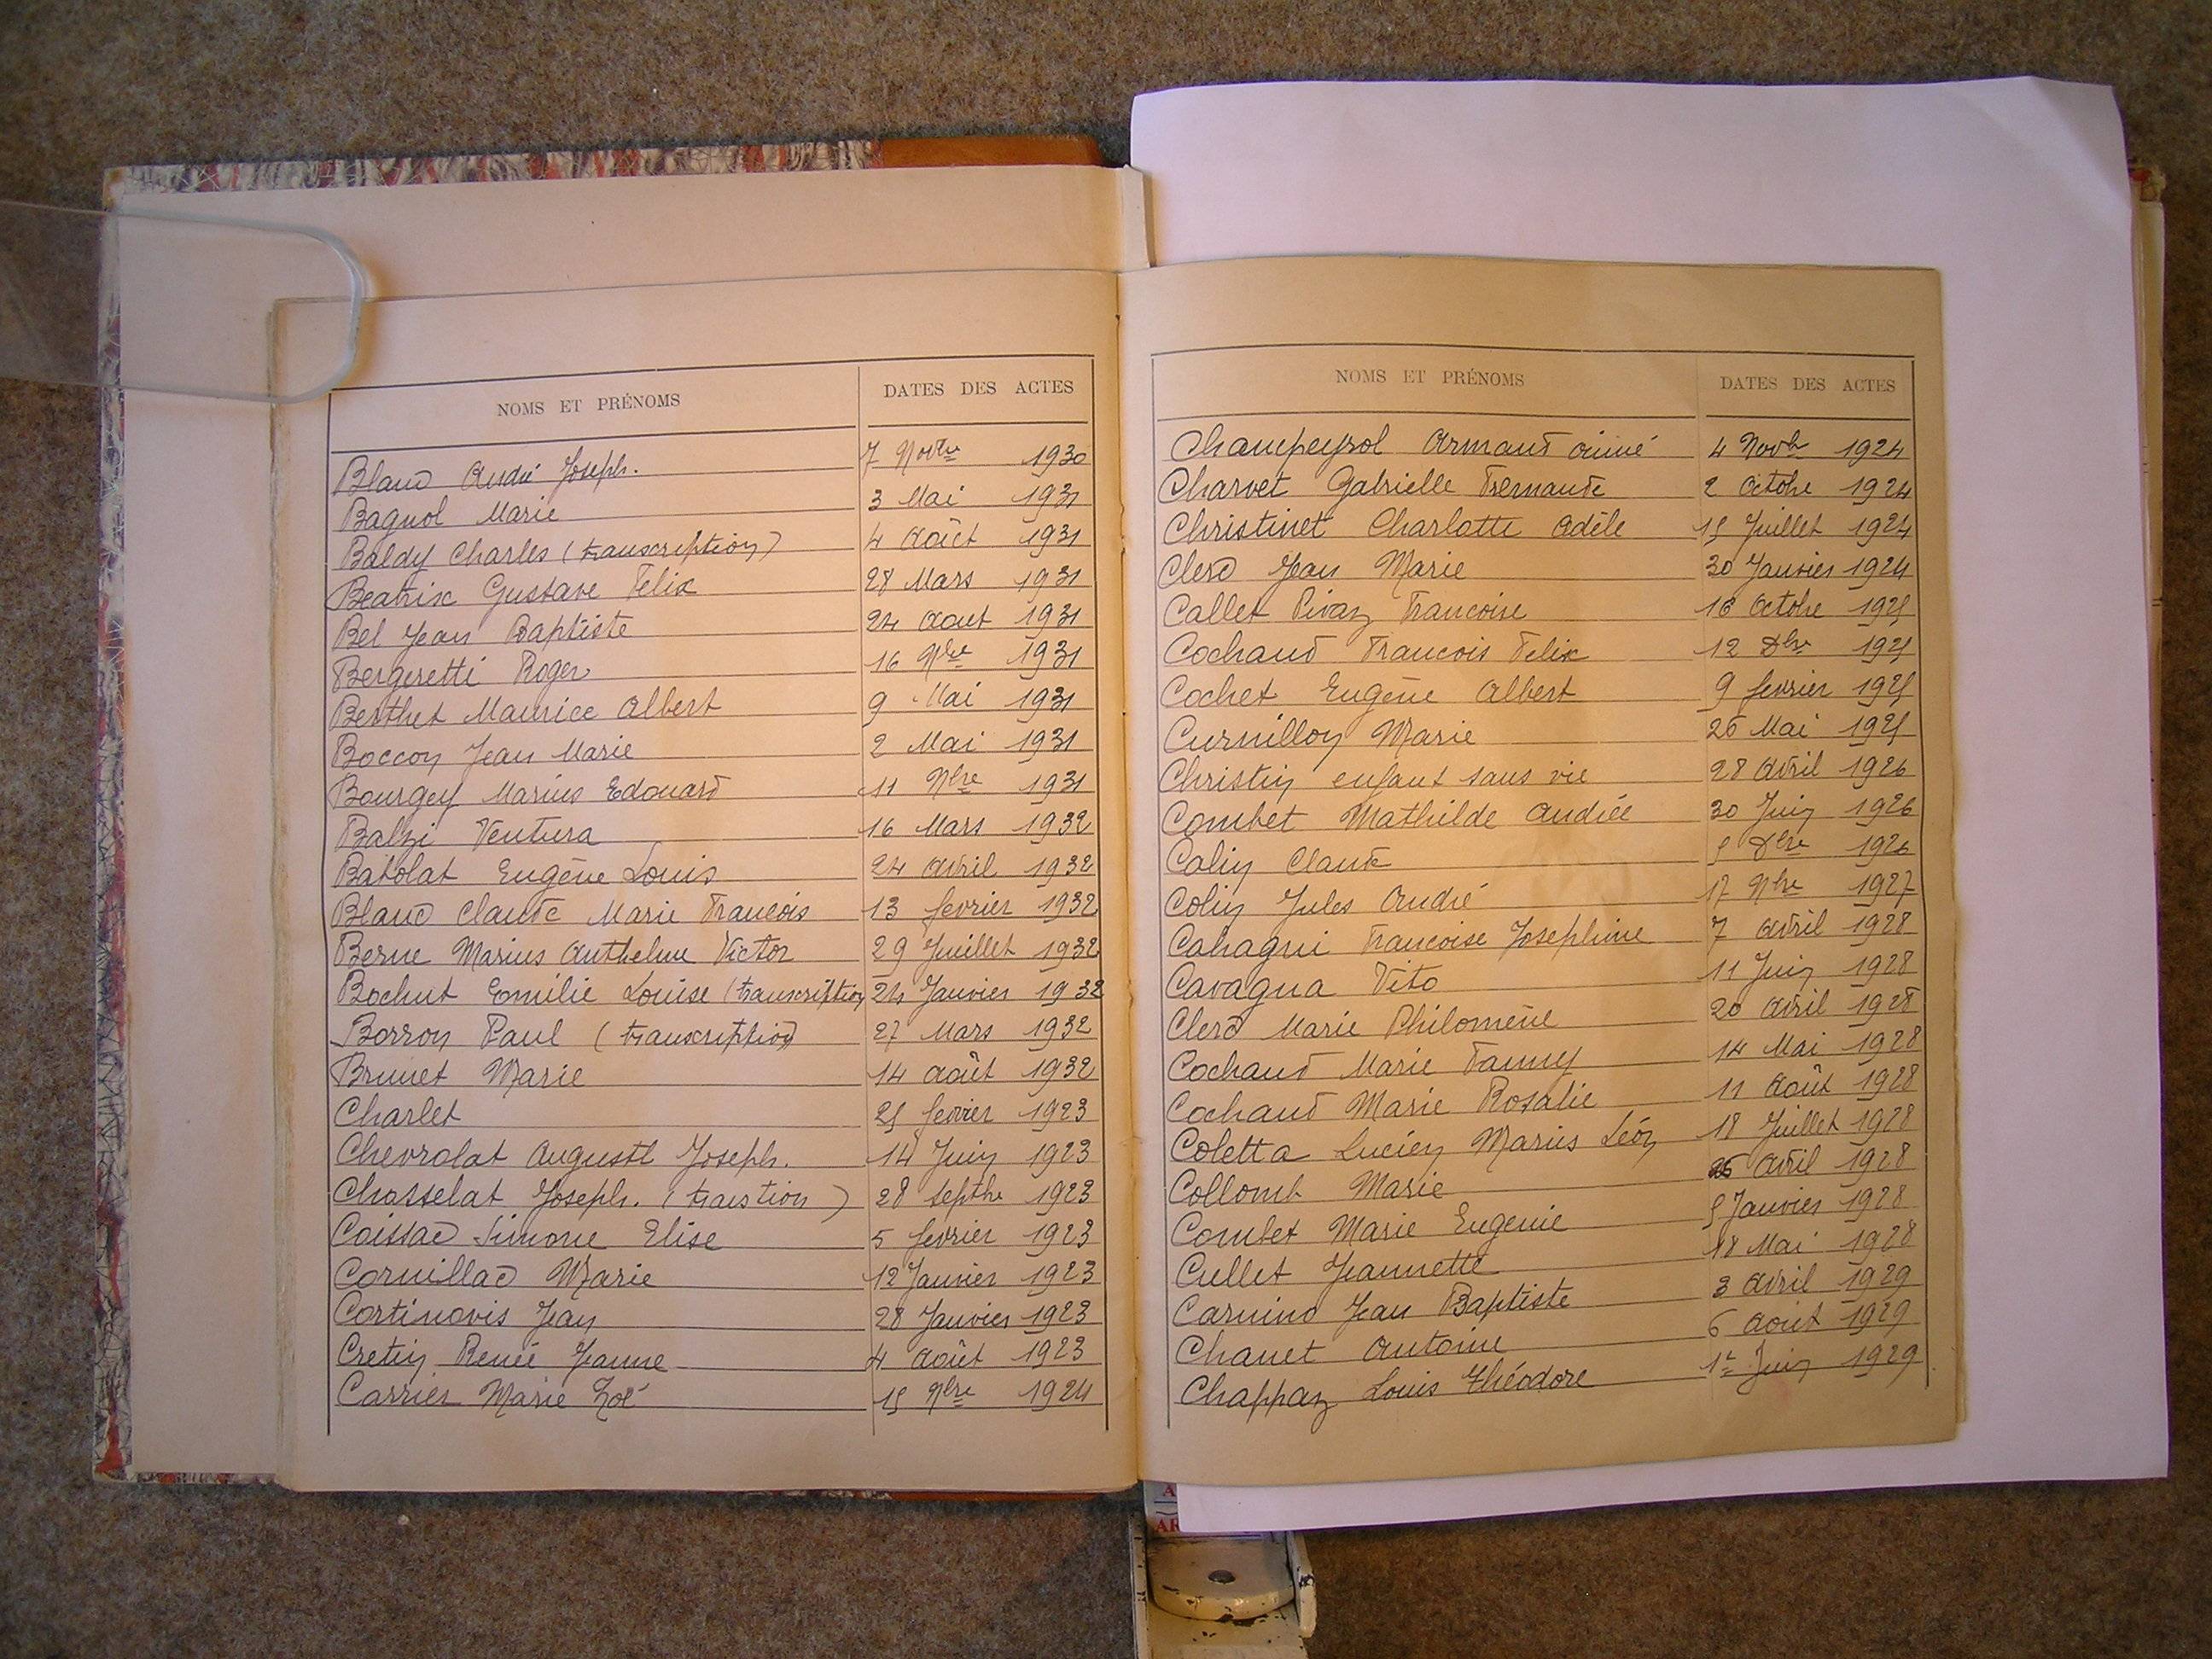 NOMS ET PRÉNOMS DATES DES ACTES
Blanc André Joseph. 7 Novbre 1930
Bagnol Marie 3 Mai 1931
Baldy Charles (transcription) 4 Août 1931
Beatrix Gustave Felix 28 Mars 1931
Bel Jean Baptiste 24 Aout 1931
Bergeretti Roger 16 Nbre 1931
Berthet Maurice Albert 9 Mai 1931
Boccon Jean Marie 2 Mai 1931
Bourgey Marius Edouard 11 Nbre 1931
Balzi Ventura 16 Mars 1932
Batolat Eugène Louis 24 Avril 1932
Blanc Claude Marie Francois 13 fevrier 1932
Berne Marius Anthelme Victor 29 Juillet 1932
Bochut Emilie Louise (transcription 24 Janvier 1932
Borron Paul (transcription) 27 Mars 1932
Brunet Marie 14 Août 1932
Charlet 25 fevrier 1923
Chevrolat Auguste Joseph. 14 Juin 1923
Chosselat Joseph. (transtion) 28 Septbre 1923
Coissac Simone Elise 5 fevrier 1923
Cornillac Marie 12 Janvier 1923
Cortinovis Jean 28 Janvier 1923
Cretin Renée Jeanne 4 Août 1923
Carrier Marie Zoé 15 Nbre 1924
NOMS ET PRÉNOMS DATES DES ACTES
Champeyrol Armand Aimé 4 Novb 1924
Charvet Gabrielle Fernande 2 Octobre 1924
Christinet Charlotte Adèle 15 Juillet 1924
Clerc Jean Marie 30 Janvier 1924
Callet Pivaz Francoise 16 Octobre 1925
Cochaud Francois Felix 12 Dbre 1925
Cochet Eugène Albert 9 fevrier 1925
Curnillon Marie 26 Mai 1925
Christin enfant sans vie 28 Avril 1926
Combet Mathilde Andrée 30 Juin 1926
Colin Claude 5 Dbre 1926
Colin Jules André 17 Nbre 1927
Cahagni Francoise Josephine 7 Avril 1928
Cavagna Vito 11 Juin 1928
Clerc Marie Philomène 20 Avril 1928
Cochaud Marie Fanny 14 Mai 1928
Cochaud Marie Rosalie 11 Août 1928
Coletta Lucien Marius Léon 18 Juillet 1928
Collomb Marie Avril 1928
Combet Marie Eugenie 5 Janvier 1928
Cullet Jeannette 18 Mai 1928
Carnino Jean Baptiste 3 Avril 1929
Chanet Antoine 6 Aout 1929
Chappaz Louis Théodore 1r Juin 1929